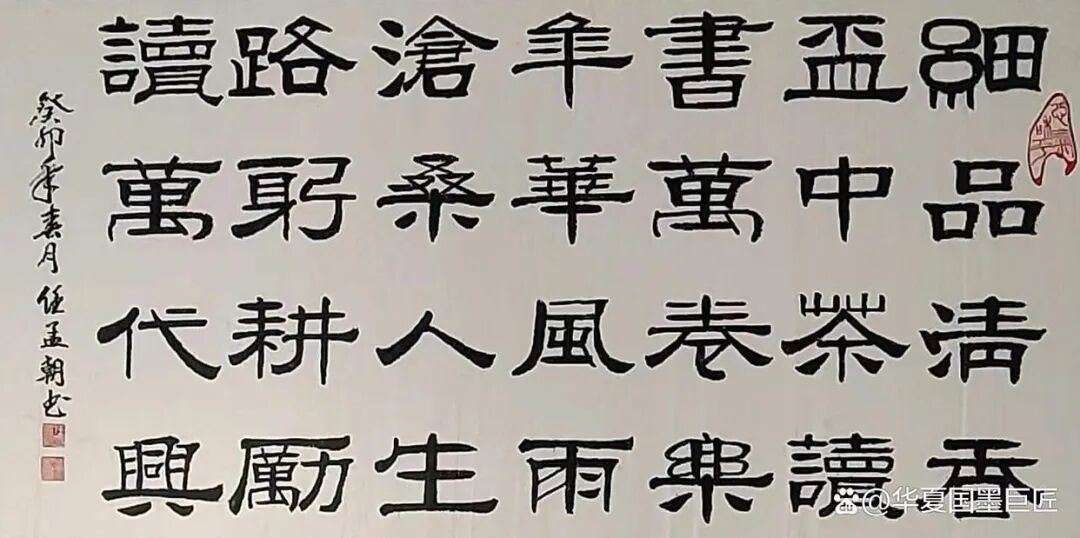 細品清香
盃中茶讀
書萬卷樂
年華風雨
滄桑人生
路躬耕勵
讀萬代興
癸卯年春月任孟朝书
@华夏国墨巨匠